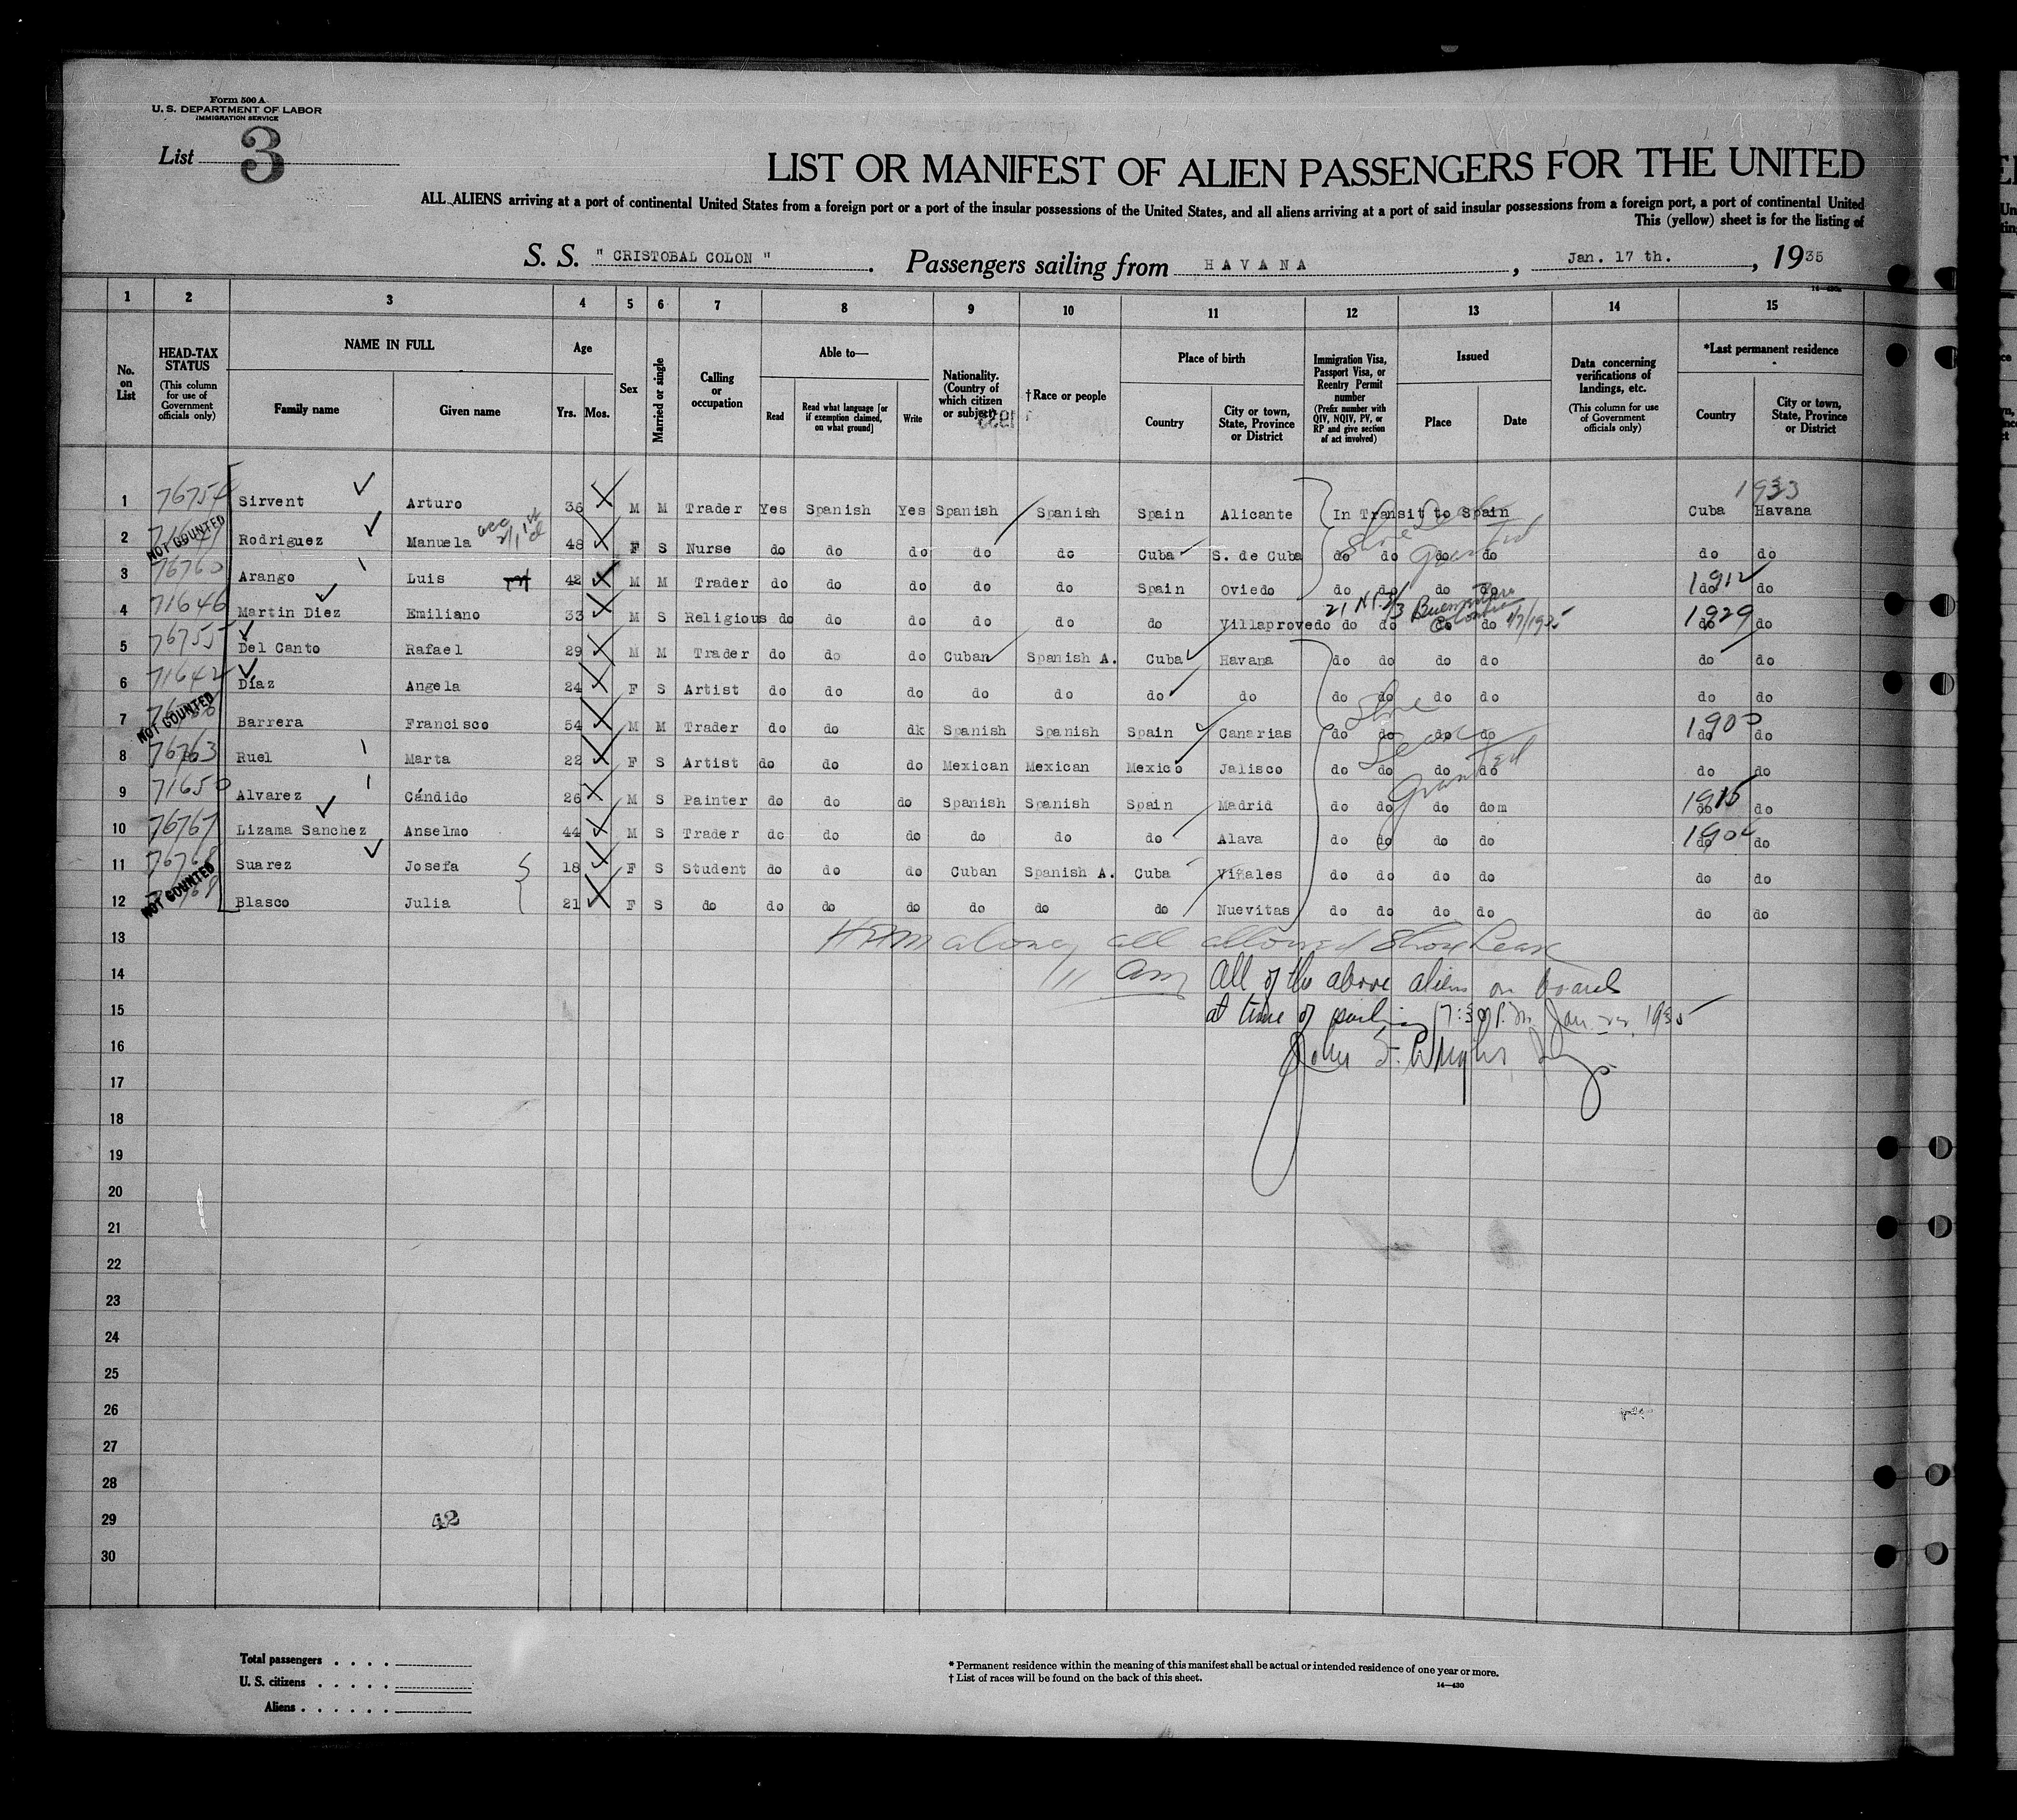 Form 500 A
U. S. DEPARTMENT OF LABOR
IMMIGRATION SERVICE
List 3
LIST OR MANIFEST OF ALIEN PASSENGERS FOR THE UNITED
ALL ALIENS arriving at a port of continental United States from a foreign port or a port of the insular possessions of the United States, and all aliens arriving at a port of said insular possessions from a foreign port, a port of continental United
This (yellow) sheet is for the listing of
S. S. " CRISTOBAL COLON " . Passengers sailing from H A V A N A , Jan. 17 th. , 1935
1 2 3 4 5 6 7 8 9 10 11 12 13 14 15
No. on List
HEAD-TAX STATUS (This column for use of Government officials only)
NAME IN FULL
Family name Given name
Age
Yrs. Mos.
Sex
Married or single
Calling or occupation
Able to—
Read
Read what language [or if exemption claimed, on what ground]
Write
Nationality. (Country of which citizen or subject)
† Race or people
Place of birth
Country
City or town, State, Province or District
Immigration Visa, Passport Visa, or Reentry Permit number (Prefix number with QIV, NQIV, PV, or RP and give section of act involved)
Issued
Place Date
Data concerning verifications of landings, etc. (This column for use of Government officials only)
*Last permanent residence
Country
City or town, State, Province or District
1933
1 76754 Sirvent Arturo 36 M M Trader Yes Spanish Yes Spanish Spanish Spain Alicante In Transit to Spain Cuba Havana
2 NOT COUNTED Rodriguez Manuela 48 F S Nurse do do do do do Cuba S. de Cuba do do do do do do
3 76760 Arango Luis 42 M M Trader do do do do do Spain Oviedo do do do do 1912 do do
4 71646 Martin Diez Emiliano 33 M S Religious do do do do do do Villaprovedo do do do do 1929 do do
5 76755 Del Canto Rafael 29 M M Trader do do do Cuban Spanish A. Cuba Havana do do do do do do
6 71642 Díaz Angela 24 F S Artist do do do do do do do do do do do do do
7 NOT COUNTED Barrera Francisco 54 M M Trader do do dk Spanish Spanish Spain Canarias do do do do 1900 do do
8 76763 Ruel Marta 22 F S Artist do do do Mexican Mexican Mexico Jalisco do do do do do do
9 71650 Alvarez Cándido 26 M S Painter do do do Spanish Spanish Spain Madrid do do do dom 1915 do do
10 76767 Lizama Sanchez Anselmo 44 M S Trader do do do do do do Alava do do do do 1904 do do
11 76768 Suarez Josefa 18 F S Student do do do Cuban Spanish A. Cuba Viñales do do do do do do
12 NOT COUNTED Blasco Julia 21 F S do do do do do do do Nuevitas do do do do do do
Shore Leave Granted
Shore Leave Granted
all allowed Shore Leave
13
14 All of the above aliens on board
15 at time of sailing 7:30 P.M. Jan 1935
16 John F. Wright
17
18
19
20
21
22
23
24
25
26
27
28
29 42
30
Total passengers . . . .
U. S. citizens . . . . .
Aliens . . . . . .
* Permanent residence within the meaning of this manifest shall be actual or intended residence of one year or more.
† List of races will be found on the back of this sheet.
14—430